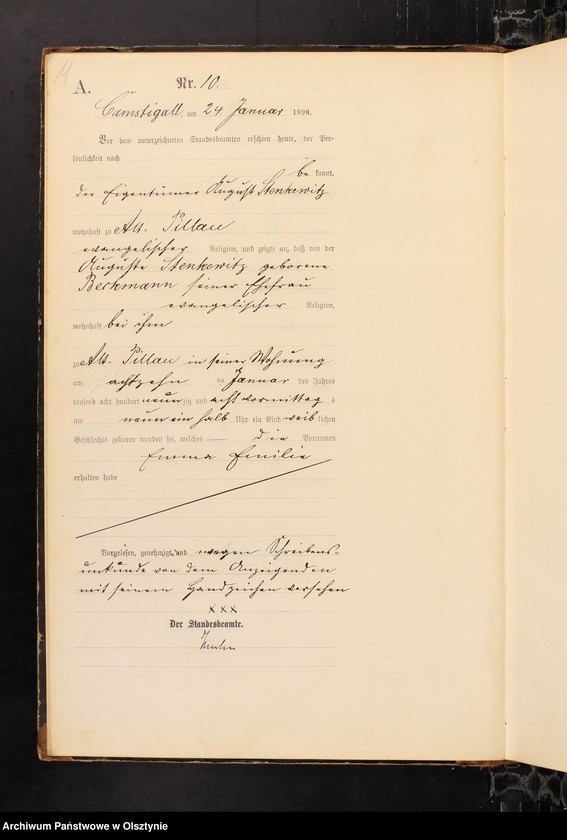 11
A.
Nr. 10.
Camstigall, am 24 Januar 1898.
Vor dem unterzeichneten Standesbeamten erschien heute, der Per-
sönlichkeit nach
be kannt,
der Eigentümer August Stenkewitz
wohnhaft zu Alt-Pillau
evangelischer Religion, und zeigte an, daß von der
Auguste Stenkewitz geborene
Beckmann seiner Ehefrau
evangelischer Religion,
wohnhaft bei ihm
zu Alt-Pillau in seiner Wohnung
am achtzehn ten Januar des Jahres
tausend acht hundert neunzig und acht vormittag s
um neun ein halb Uhr ein Kind weib lichen
Geschlechts geboren worden sei, welches die Vornamen
Emma Emilie
erhalten habe
Vorgelesen, genehmigt und wegen Schreibens-
unkunde von dem Anzeigenden
mit seinem Handzeichen versehen
xxx
Der Standesbeamte.
Archiwum Państwowe w Olsztynie